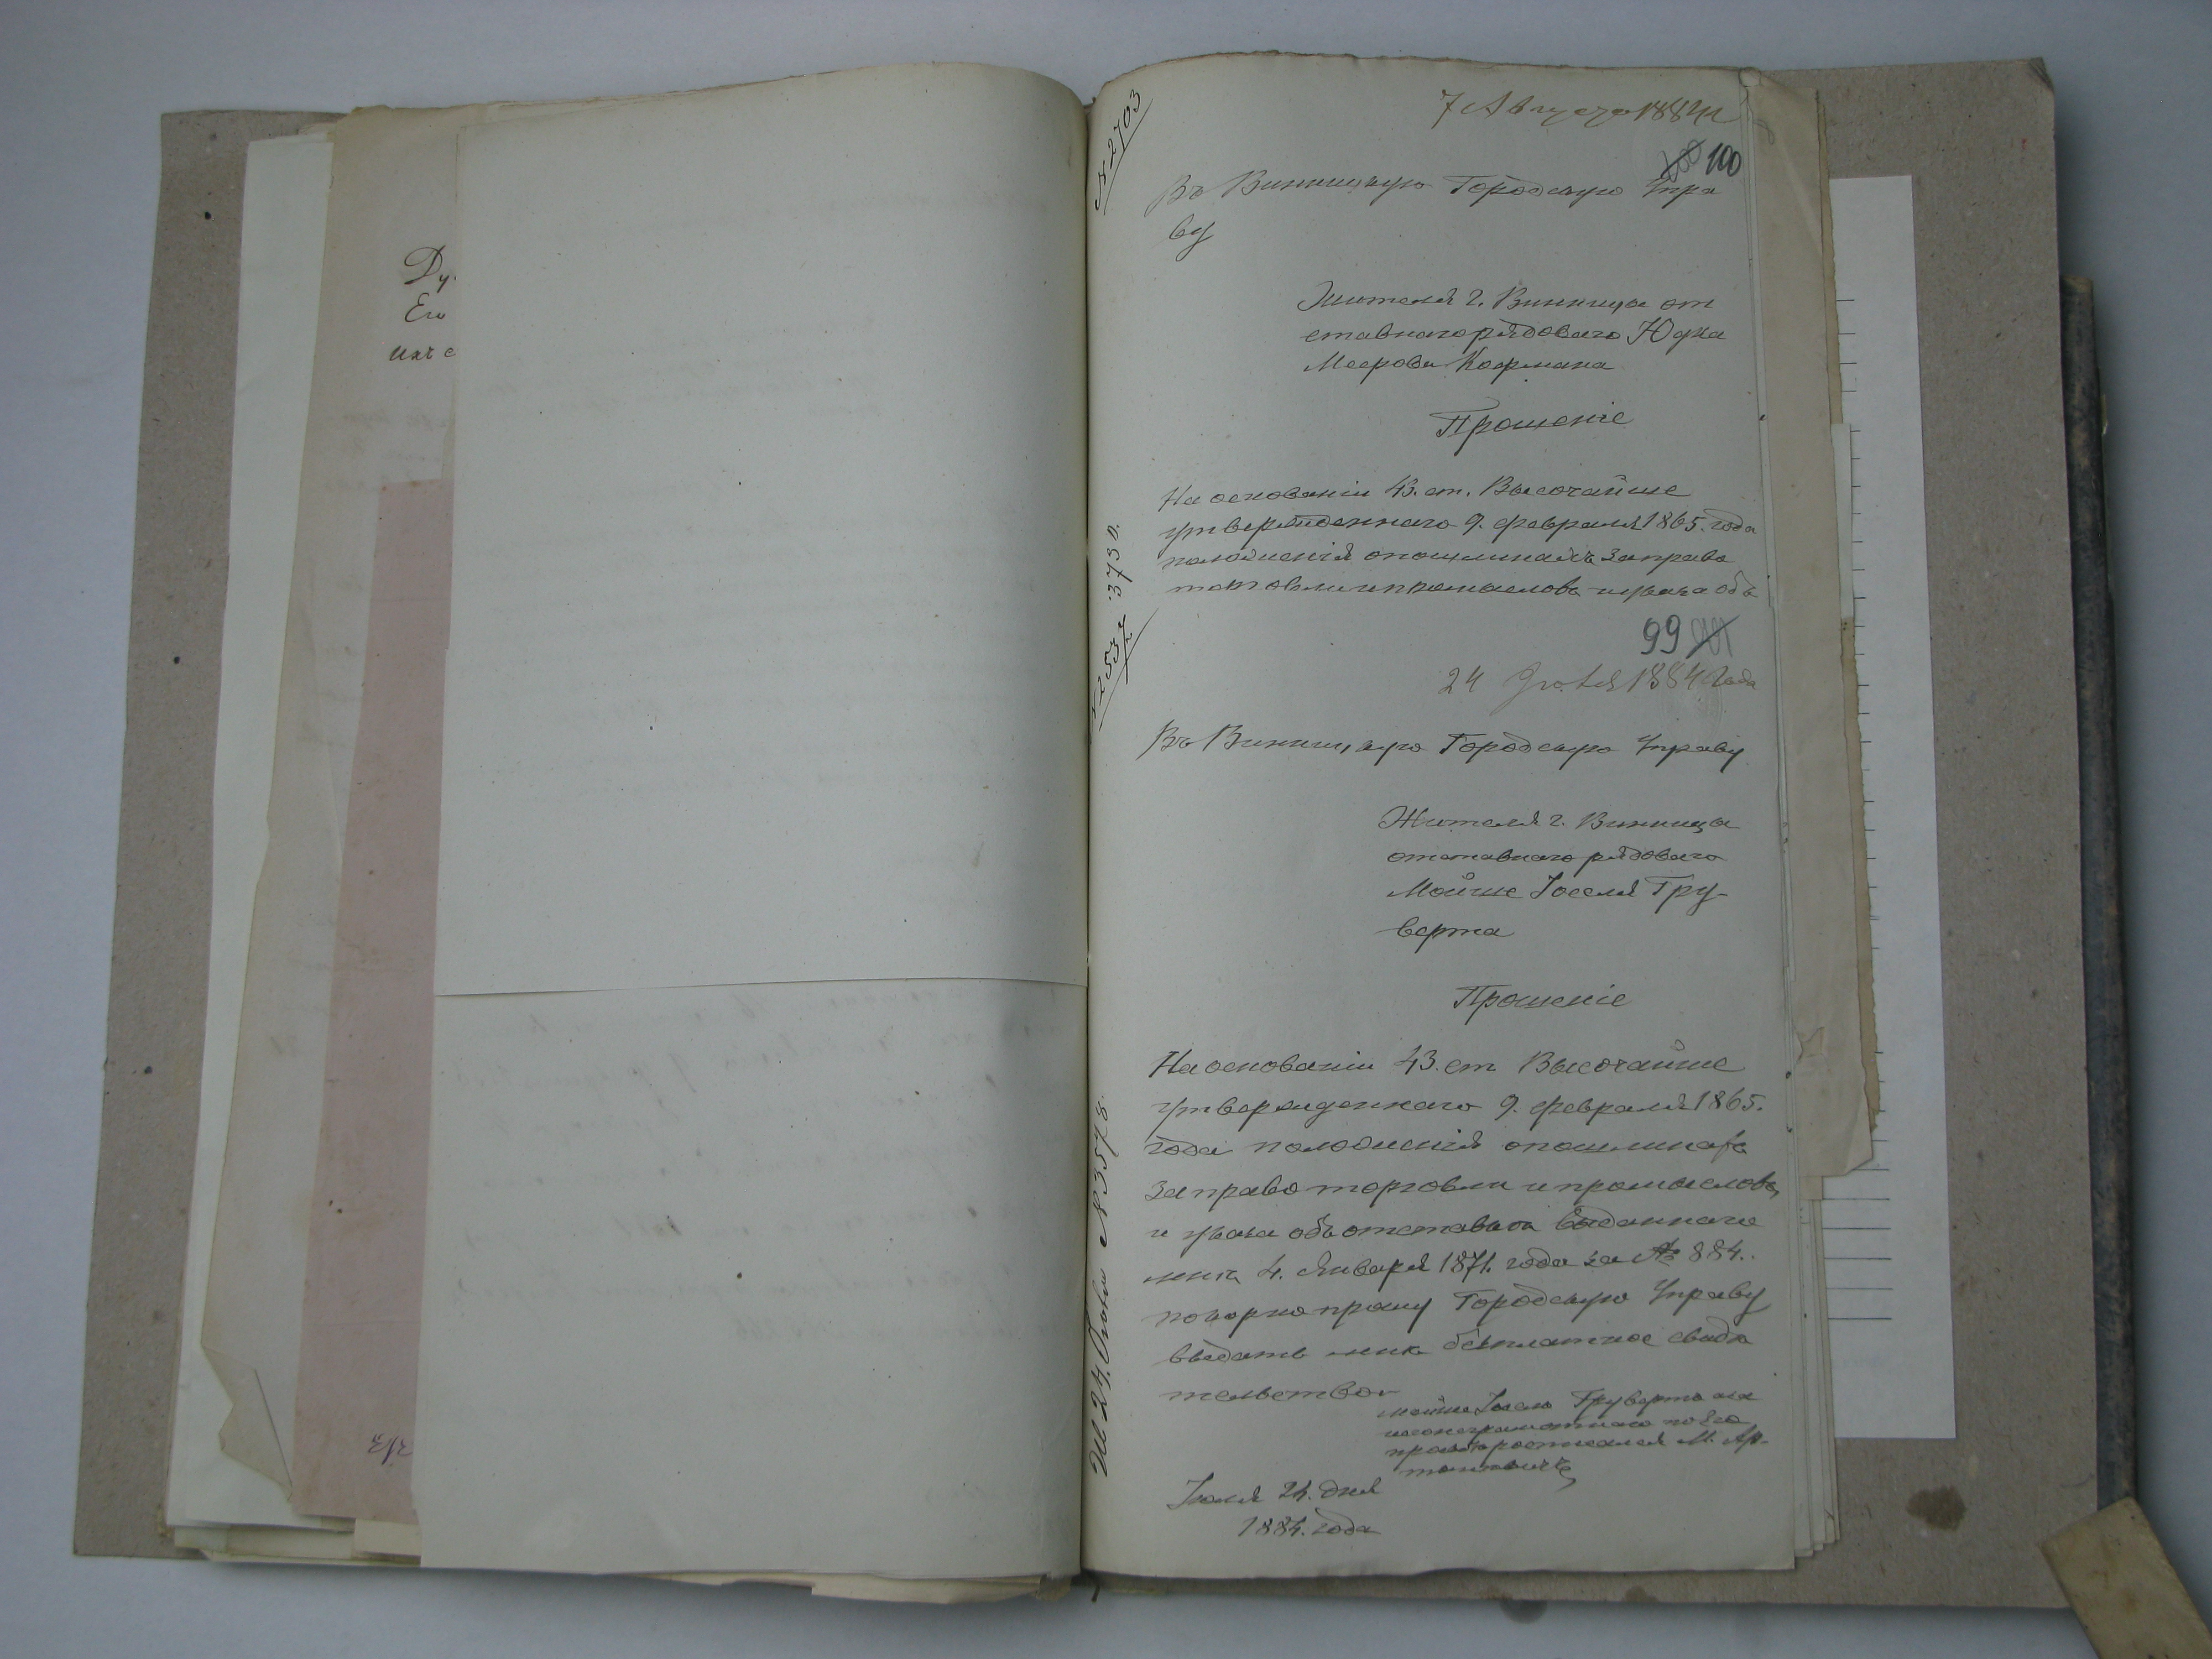 Ду
Его
ихъ с
№ 2703
7 Августа 1884 г
100 100
Въ Винницкую Городскую Упра
ву
Жителя г. Винницы от
ставнаго рядоваго Юдка
Меерова Кофмана
Прошеніе
На основаніи 43. ст. Высочайше
утвержденнаго 9. февраля 1865. года
положенія о пошлинахъ за право
торговли и промысловъ и указа объ
3730.
99
24 Іюля 1884 года
Въ Винницкую Городскую Управу
Жителя г. Винницы
отставнаго рядоваго
Мойше Іоселя Гру-
верта
Прошеніе
На основаніи 43. ст Высочайше
утвержденнаго 9. февраля 1865.
года положенія о пошлинахъ
за право торговли и промысловъ,
и указа объ отставки выданнаго
мнѣ 4. Января 1871. года за № 884.
покорно прошу Городскую Управу
выдать мнѣ безплатное свидѣ
тельство
Мойше Іосель Грувертъ а за
его неграмотнаго по его
прозьбѣ росписался М. Ар-
Іюля 24. дня
1884. года
24 Іюля № 3578.